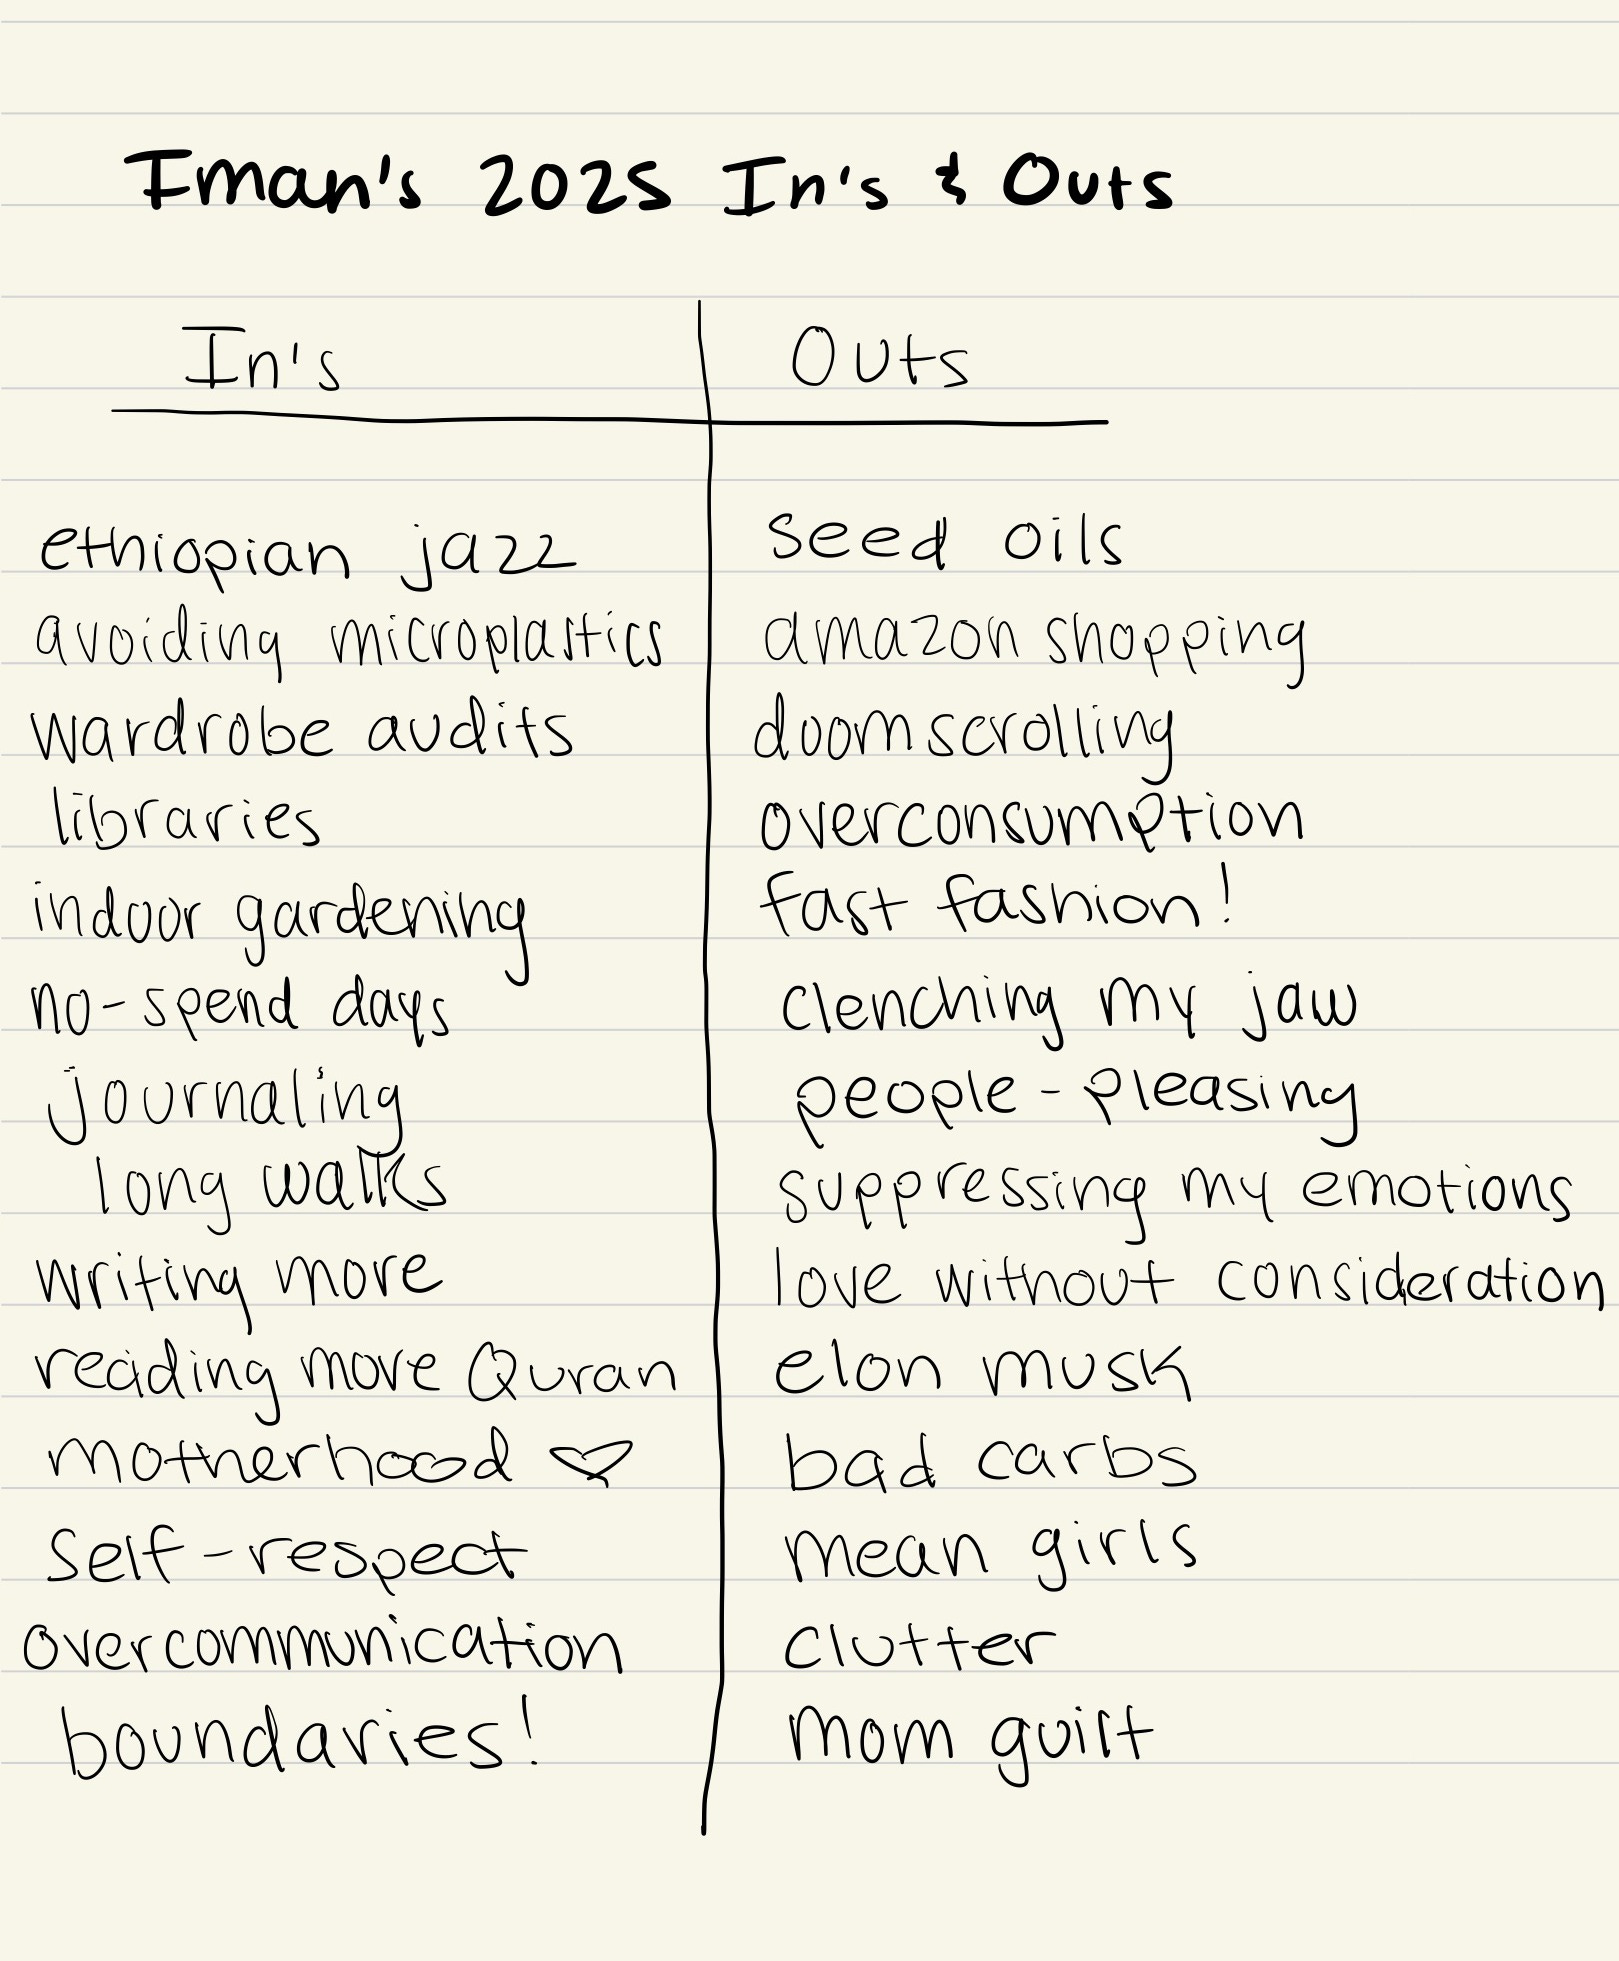 Iman's 2025 In's & Outs
In's
ethiopian jazz
avoiding microplastics
wardrobe audits
libraries
indoor gardening
no-spend days
journaling
long walks
writing more
reading more Quran
motherhood ♡
self-respect
overcommunication
boundaries!
Outs
seed oils
amazon shopping
doomscrolling
overconsumption
fast fashion!
clenching my jaw
people-pleasing
suppressing my emotions
love without consideration
elon musk
bad carbs
mean girls
clutter
mom guilt